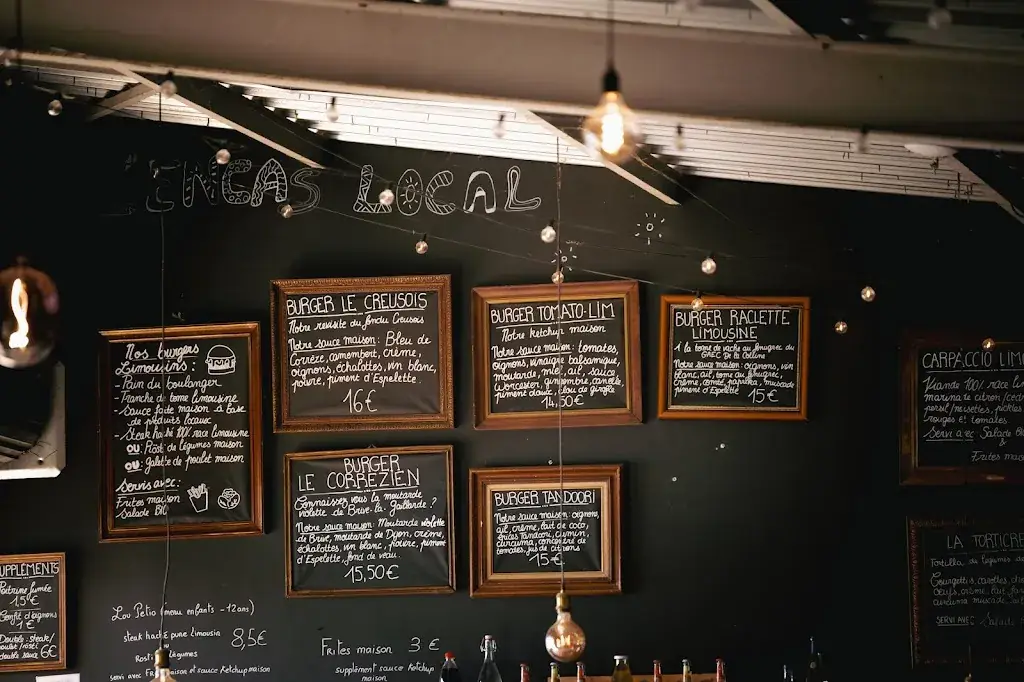 LOCAL
BURGER LE CREUSOIS
Notre revisite du fondu Creusois
Notre sauce maison: Bleu de
Corrèze, camembert, crème,
oignons, échallottes, vin blanc,
poivre, piment d'Espelette.
16€
BURGER TOMATO-LIM
Notre ketchup maison
Notre sauce maison: tomates,
oignons, vinaigre balsamique,
moutarde, miel, ail, sauce
Worcester, gingembre, canelle,
piment doux, clou de girofle
14,50€
BURGER RACLETTE
LIMOUSINE
À la tome de vache au fenugrec du
GAEC De la Colline
Notre sauce maison: oignons, vin
blanc, ail, tome au fenugrec,
crème, comté, paprika, muscade
piment d'Espelette 15€
Nos burgers
Limousins:
- Pain du boulanger
- Tranche de tome limousine
- Sauce faite maison à base
de produits locaux
- Steak haché 100% race limousine
ou: Rösti de légumes maison
ou: Galette de poulet maison
Servis avec:
Frites maison
Salade Bio
BURGER
LE CORREZIEN
Connaissez vous la moutarde
violette de Brive-la-Gaillarde?
Notre sauce maison: Moutarde violette
de Brive, moutarde de Dijon, crème,
échalottes, vin blanc, poivre, piment
d'Espelette, fond de veau.
15,50€
BURGER TANDOORI
Notre sauce maison: oignons,
ail, crème, lait de coco,
épices Tandoori, cumin,
curcuma, concentré de
tomates, jus de citrons
15€
CARPACCIO LIM
Viande 100% race lim
marina te citron/céd
persil/noisettes, pickles
rouges et tomates
Servi avec Salade B
Frites mais
LA TORTICRE
Tortilla de légumes de
Courgettes, carottes, che
oeufs, crème, lait, fa
curcuma muscade, lait
SERVI AVEC Salade
SUPPLÉMENTS
Poitrine fumée
1,5€
Confit d'oignons
1€
Double: steak/
poulet/rösti
double sauce 6€
Lou Petio (menu enfants -12ans)
steak haché pure Limousin 8,5€
Rosti légumes
servi avec Frites maison et sauce Ketchup maison
Frites maison 3€
supplément sauce Ketchup
maison